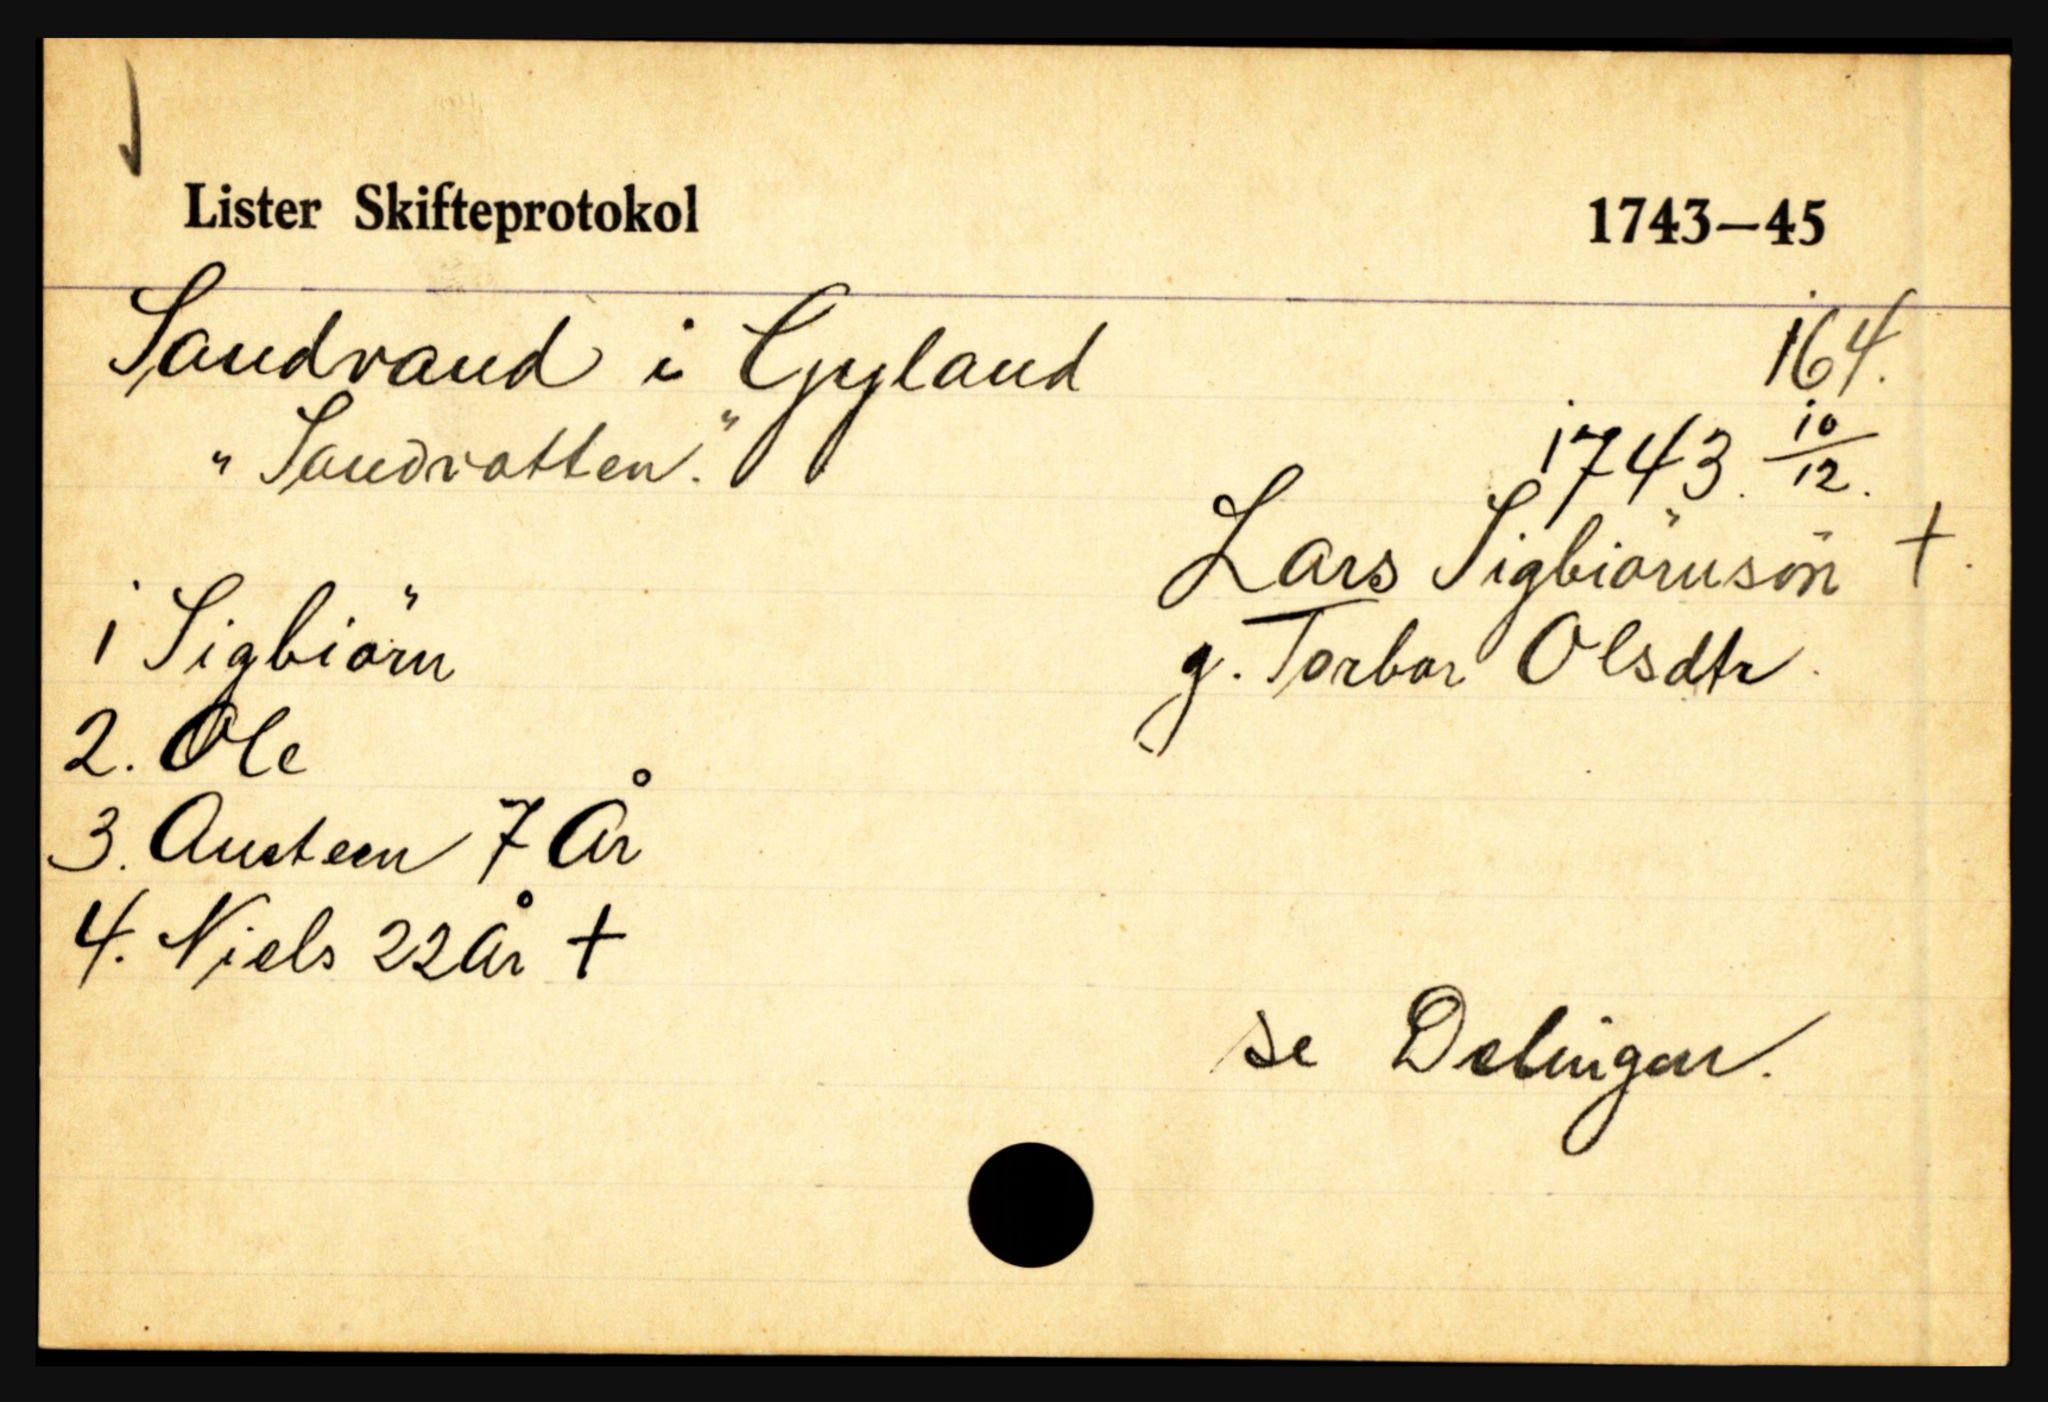 Lister Skifteprotokol 1743—45
Sandvand i Gyland 164.
"Sandvatten." 1743. 10/12.
Lars Sigbiörnsön +.
1 Sigbiörn g. Torbor Olsdtr.
2. Ole
3. Austeen 7 År
4. Niels 22 År +
se Delingen.